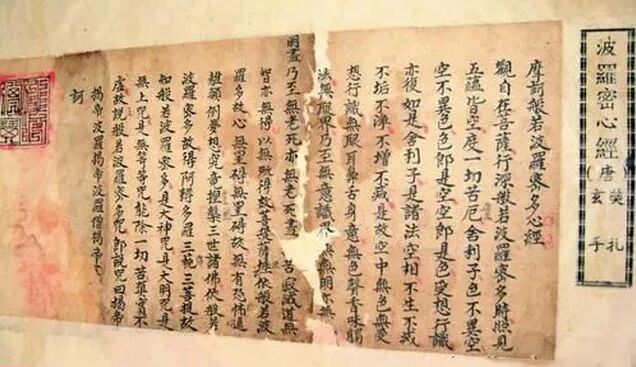 波羅密心經
（唐）
玄奘
手札
摩訶般若波羅蜜多心經
觀自在菩薩行深般若波羅蜜多時照見
五蘊皆空度一切苦厄舍利子色不異空
空不異色色即是空空即是色受想行識
亦復如是舍利子是諸法空相不生不滅
不垢不淨不增不減是故空中無色無受
想行識無眼耳鼻舌身意無色聲香味觸
法無眼界乃至無意識界無無明亦無
明盡乃至無老死亦無老死盡苦寂滅道無
智亦無得以無所得故菩提薩埵依般若波
羅多故心無罣礙無罣礙故無有恐怖遠
顛倒夢想究竟捏槃三世諸佛依般若
波羅蜜多故得阿耨多羅三藐三菩提故
知般若波羅蜜多是大神咒是大明咒是
無上咒是無等等咒能除一切苦真實不
虛故說般若波羅蜜多咒即說咒曰揭帝
揭帝波羅揭帝波羅僧揭帝
訶